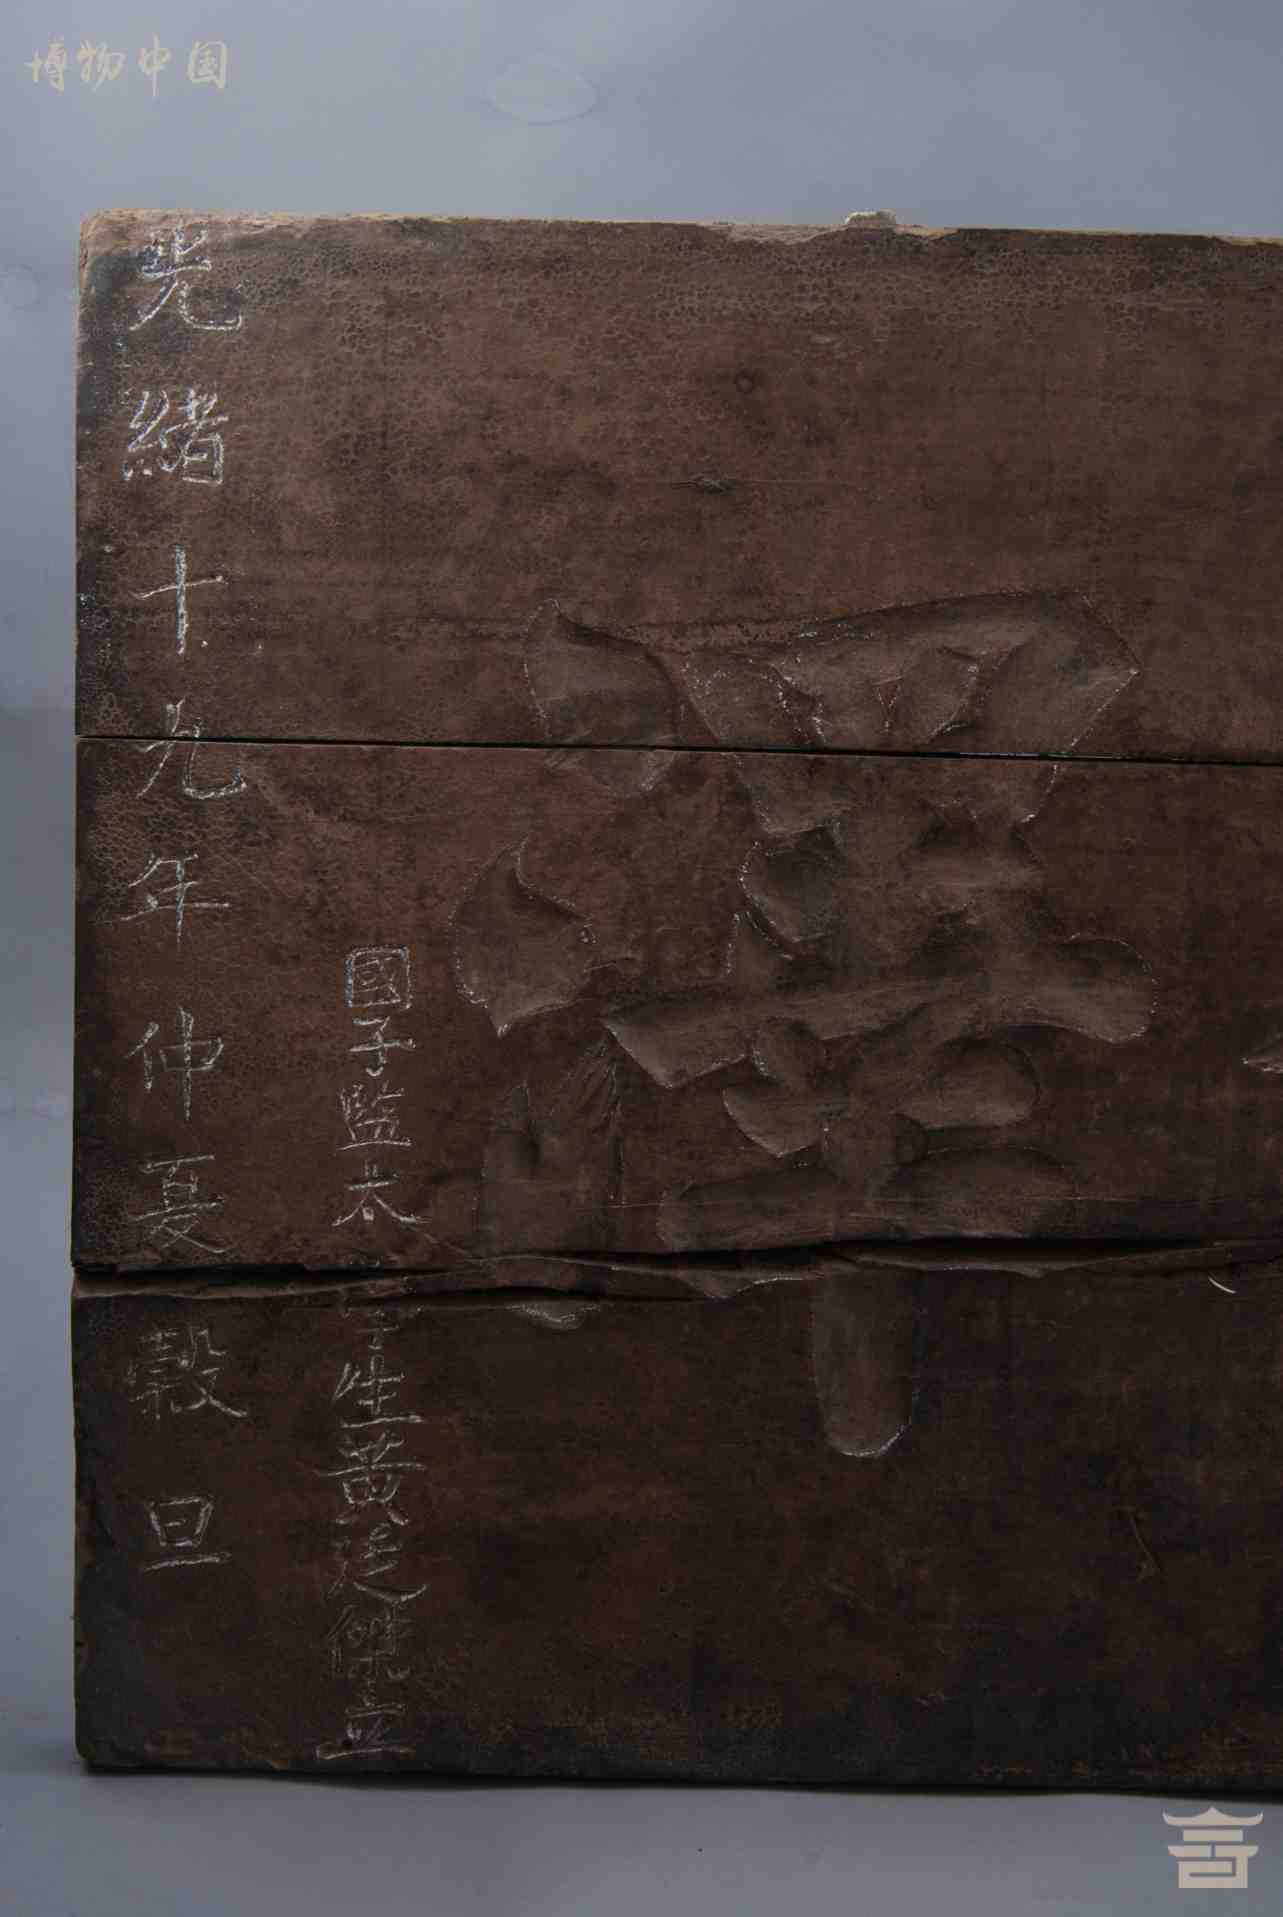 博物中国
國子監太學生黃廷傑立
光緒十九年仲夏穀旦